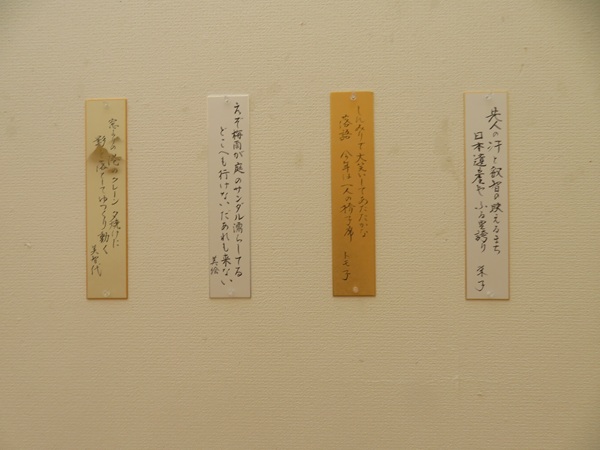 先人の汗と叡智の映えるまち
日本遺産や ふる里誇り 栄子
大笑いしてあたたかな
落語 今年は一人の椅子席
トモ子
えぞ梅雨が庭のサンダル濡らしてる
どこへも行けないだあれも来ない
美絵
港のクレーン夕焼けに
してゆっくり動く
美智代